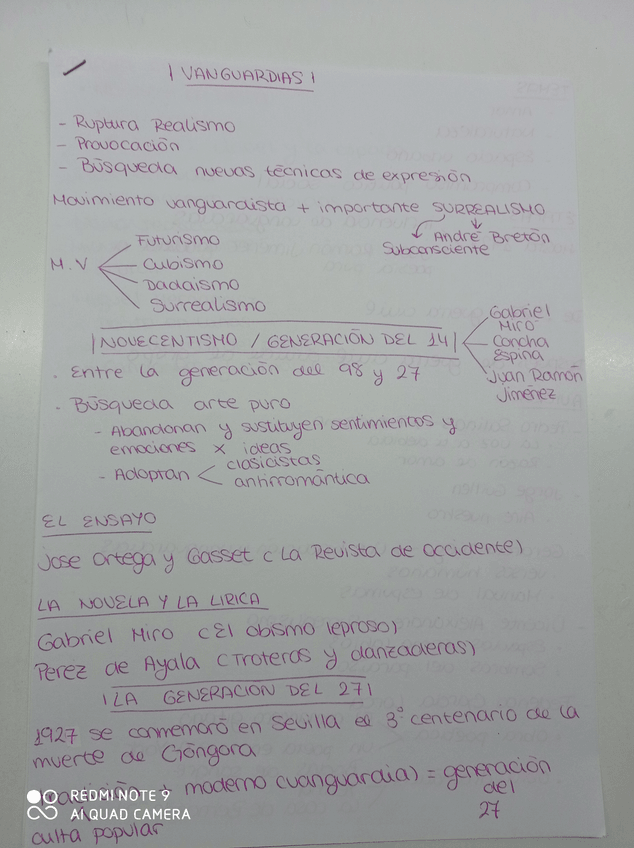 | VANGUARDIAS |
- Ruptura Realismo
- Provocación
- Búsqueda nuevas técnicas de expresión
Movimiento vanguardista + importante SURREALISMO
André Bretón
Subconsciente
M.V
Futurismo
Cubismo
Dadaismo
Surrealismo
| NOVECENTISMO / GENERACIÓN DEL 14 |
Gabriel
Miro
Concha
Espina
Juan Ramón
Jiménez
. Entre la generación del 98 y 27
. Búsqueda arte puro
- Abandonan y sustituyen sentimientos y
emociones x ideas
- Adoptan
clasicistas
antirromántica
EL ENSAYO
Jose Ortega y Gasset (La Revista de occidente)
LA NOVELA Y LA LIRICA
Gabriel Miro (El obismo leproso)
Perez de Ayala (Troteras y danzaderas)
| LA GENERACION DEL 27 |
1927 se conmemoró en Sevilla el 3º centenario de la
muerte de Góngora
+ moderno (vanguardia) = generación
del
27
culta popular
REDMI NOTE 9
AI QUAD CAMERA